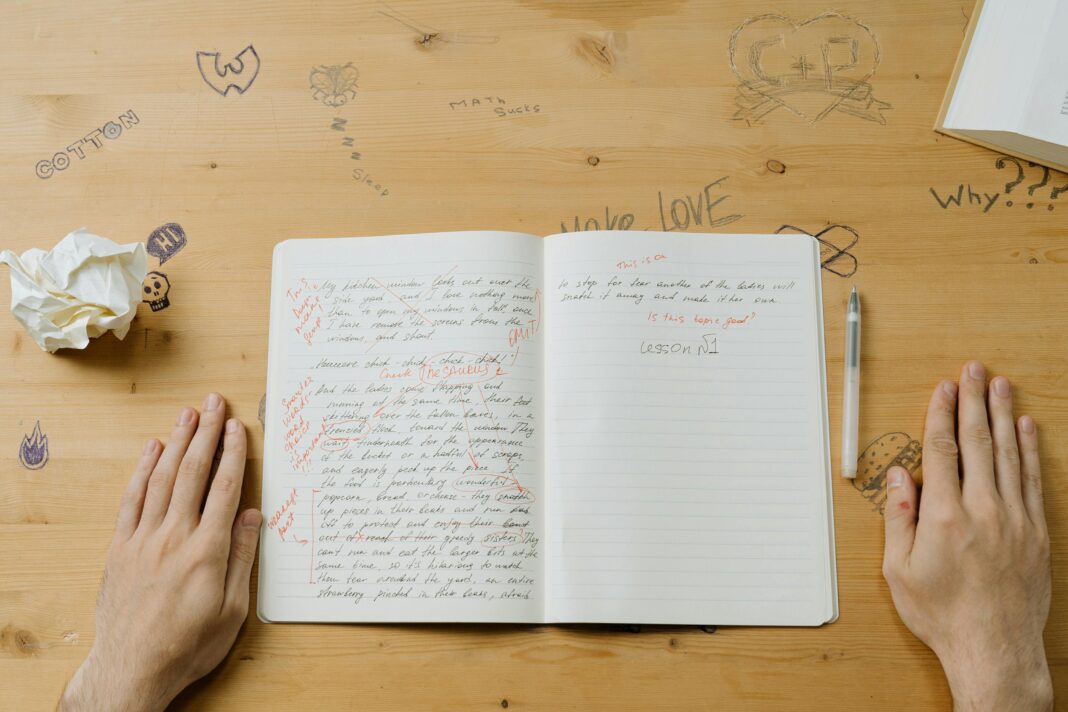 COTTON
W
zzzz
Sleep
MATH
Sucks
C+P
Why???
HI
MAKE LOVE
This is a
My kitchen window looks out over the
side yard, and I love nothing more
than to open my windows in fall, once
I have remove the screens from the
windows, and shout.
OMIT
chick-chick-chick-chick!
Check Thesaurus
And the ladies come flapping and
running at the same time, their feet
skittering over the fallen leaves, in a
frenzied flock toward the window. They
wait underneath for the appearance
of the bucket or a hadful of scraps
and eagerly peck up the piece. If
the food is particulary wonderful
popcorn, bread, or cheese - they snatch
up pieces in their beaks and run
off to protect and enjoy their
out of reach of their greedy sisters. They
cant run and eat the larger bits at the
same time, so it's hilarious to watch
them tear around the yard, an entire
strawberry pinched in their beaks, afraid
weakest
part
to stop for fear another of the ladies will
snatch it away and make it her own.
Is this topic good?
Lesson №1